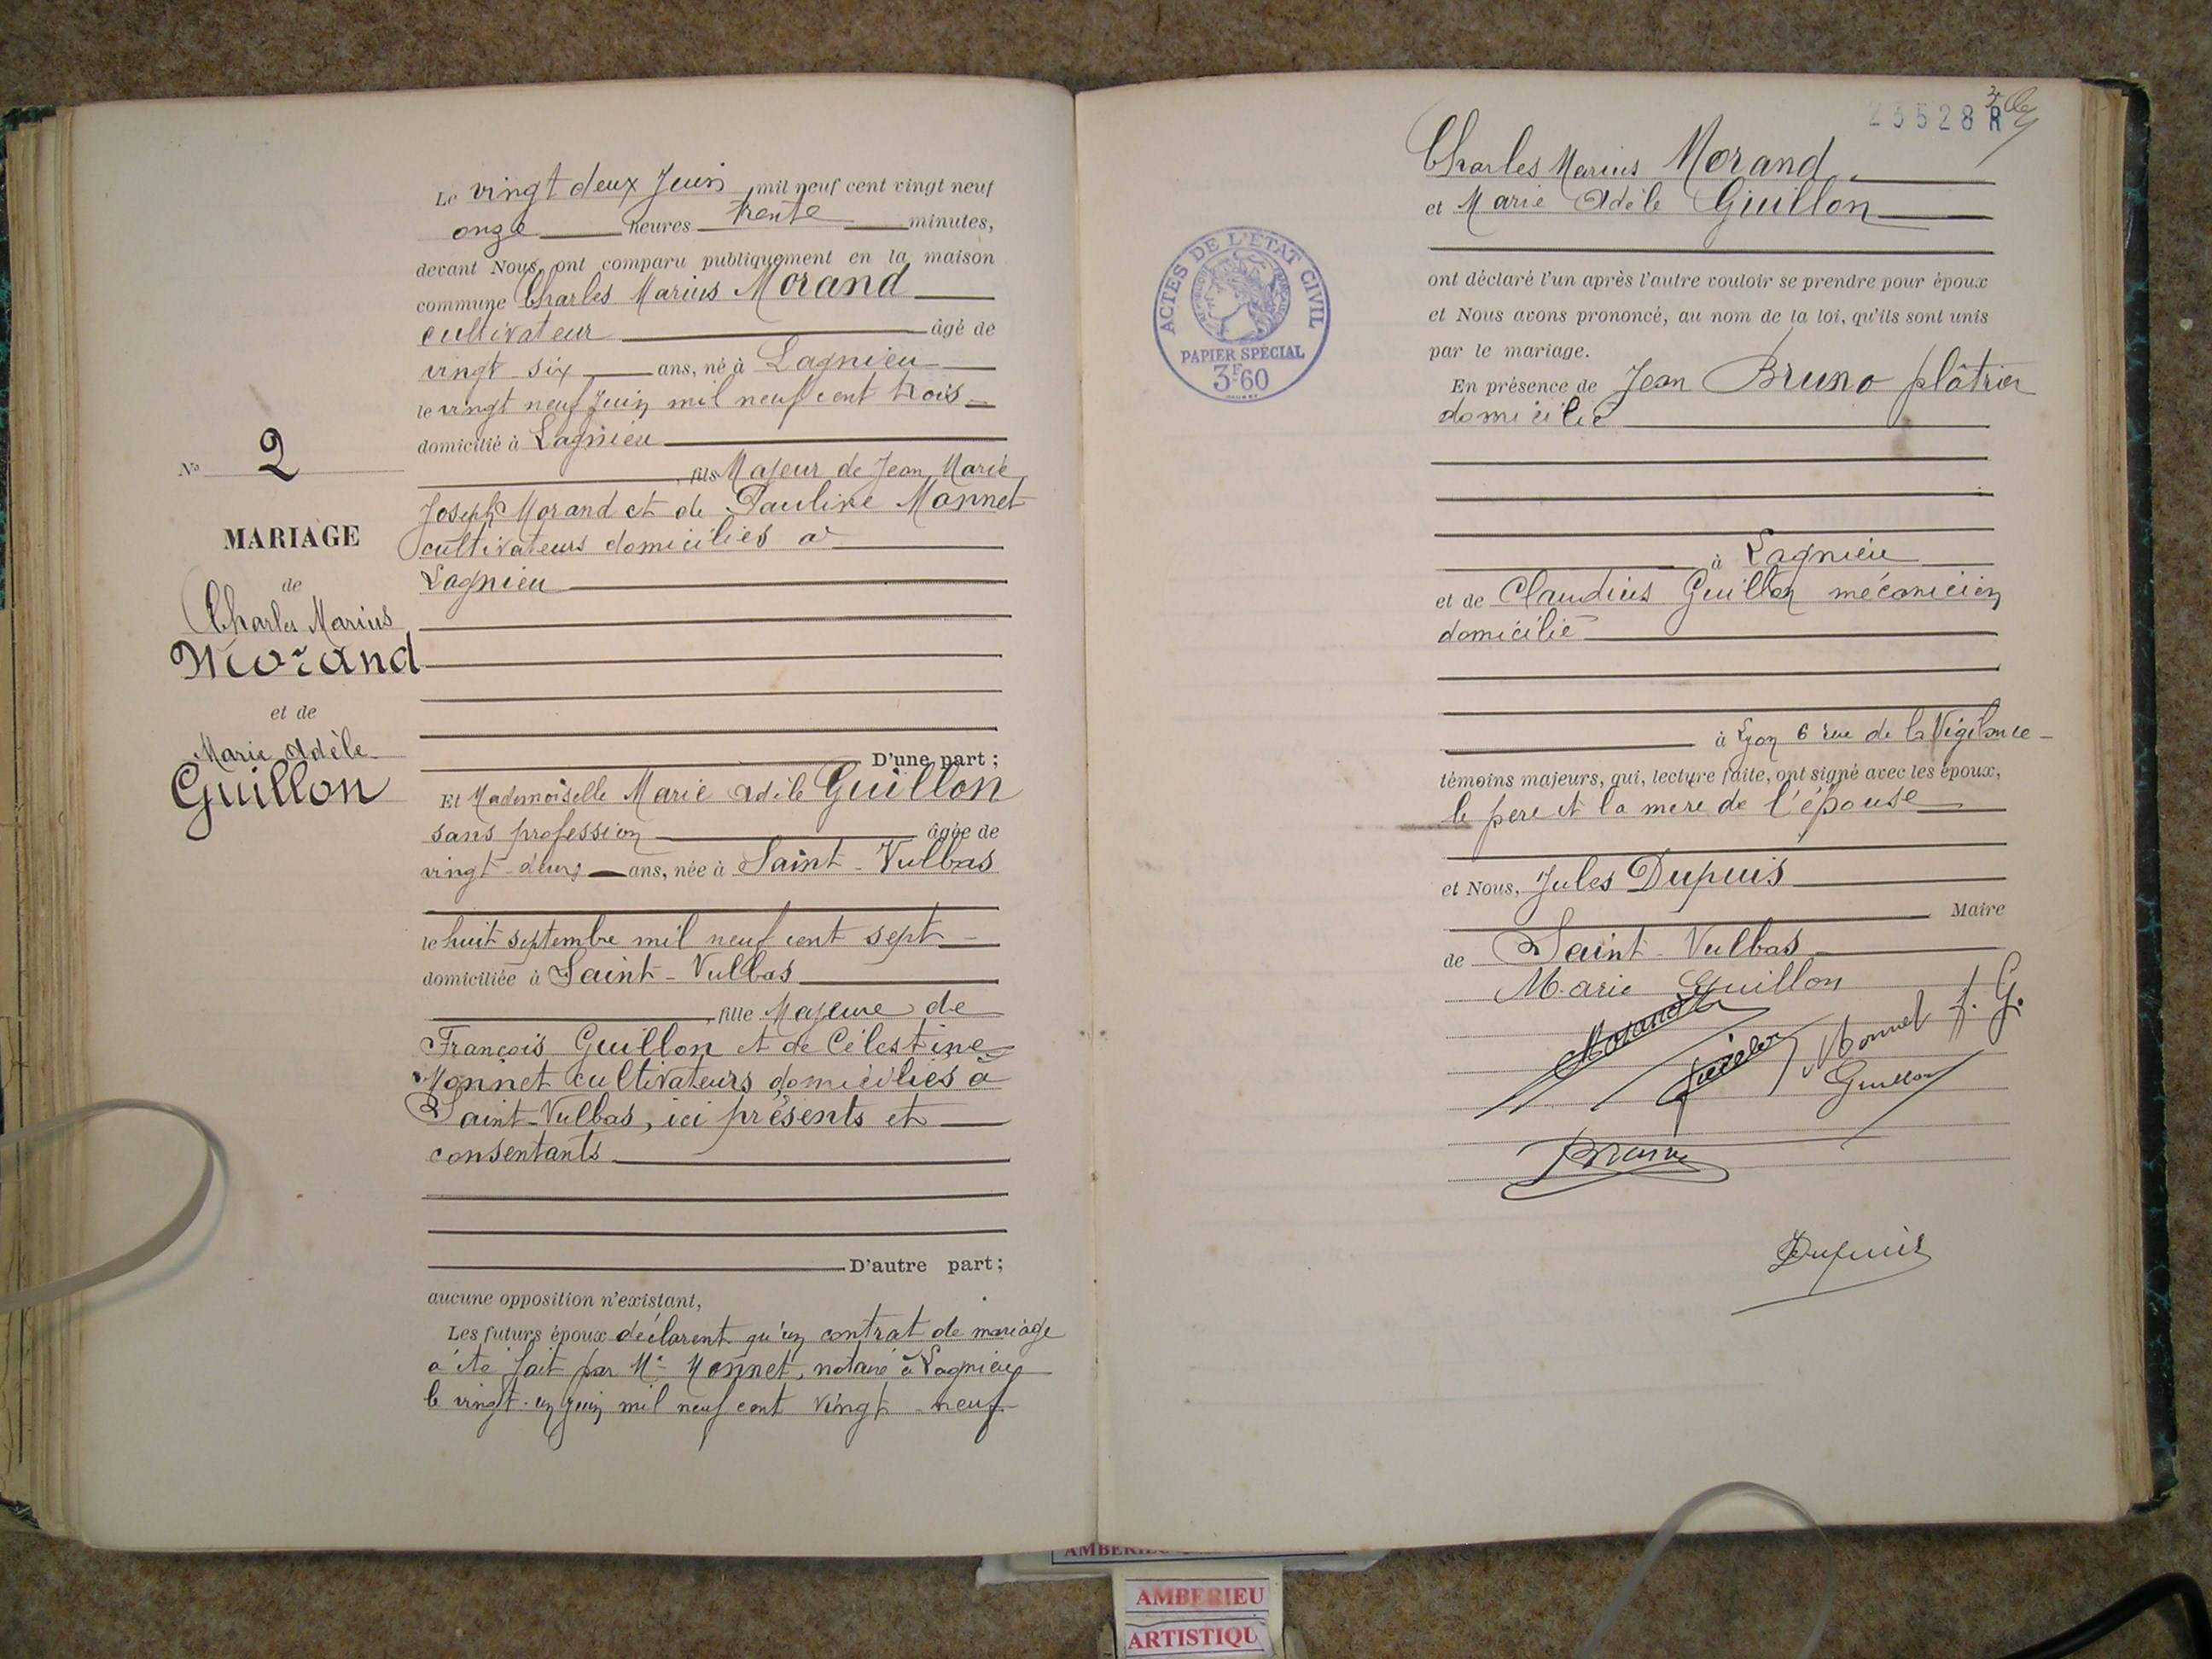 Le vingt deux Juin mil neuf cent vingt neuf
onze heures trente minutes,
devant Nous, ont comparu publiquement en la maison
commune Charles Marius Morand
cultivateur âgé de
vingt six ans, né à Lagnieu
le vingt neuf Juin mil neuf cent trois
domicilié à Lagnieu
, fils Majeur de Jean Marie
Joseph Morand et de Pauline Monnet
cultivateurs domiciliés à
Lagnieu
D'une part ;
Et Mademoiselle Marie Adèle Guillon
sans profession âgée de
vingt-deux ans, née à Saint-Vulbas
le huit septembre mil neuf cent sept
domiciliée à Saint-Vulbas
, fille Majeure de
François Guillon et de Célestine
Monnet cultivateurs domiciliés à
Saint-Vulbas, ici présents et
consentants
D'autre part ;
aucune opposition n'existant,
Les futurs époux déclarent qu'un contrat de mariage
a été fait par Me Monnet, notaire à Lagnieu
le vingt-un juin mil neuf cent vingt-neuf
No 2
MARIAGE
de
Charles Marius
Morand
et de
Marie Adèle
Guillon
23528 R
Charles Marius Morand
et Marie Adèle Guillon
ont déclaré l'un après l'autre vouloir se prendre pour époux
et Nous avons prononcé, au nom de la loi, qu'ils sont unis
par le mariage.
En présence de Jean Bruno plâtrier
domicilié
à Lagnieu
et de Claudius Guillon mécanicien
domicilié
à Lyon 6 rue de la Vigilance
témoins majeurs, qui, lecture faite, ont signé avec les époux,
le père et la mère de l'épouse
et Nous, Jules Dupuis
Maire
de Saint-Vulbas
Marie Guillon
Morand
Monnet f. G.
Guillon
Bruno
Dupuis
ACTES DE L'ÉTAT CIVIL
RÉPUBLIQUE FRANÇAISE
PAPIER SPÉCIAL
3F60
AMBERIEU
ARTISTIQU